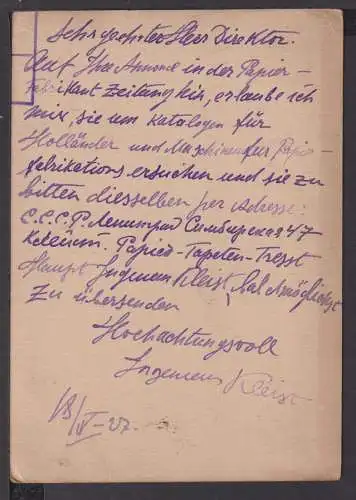 Sehr geehrter Herr Direktor.
Auf Ihre Annonce in der Papier-
fabrikant Zeitung hin, erlaube ich
mir, sie um Katalogen für
Holländer und Maschinen für Papier-
fabrikations ersuchen und sie zu
bitten diesselben per Adresse:
С.С.С.Р. Ленинград Симбирская 47
Papier-Tapeten-Trest
Haupt Ingenieur Kleist, baldmöglichst
zu übersenden
Hochachtungsvoll
Ingenieur Kleist
18/V-27.